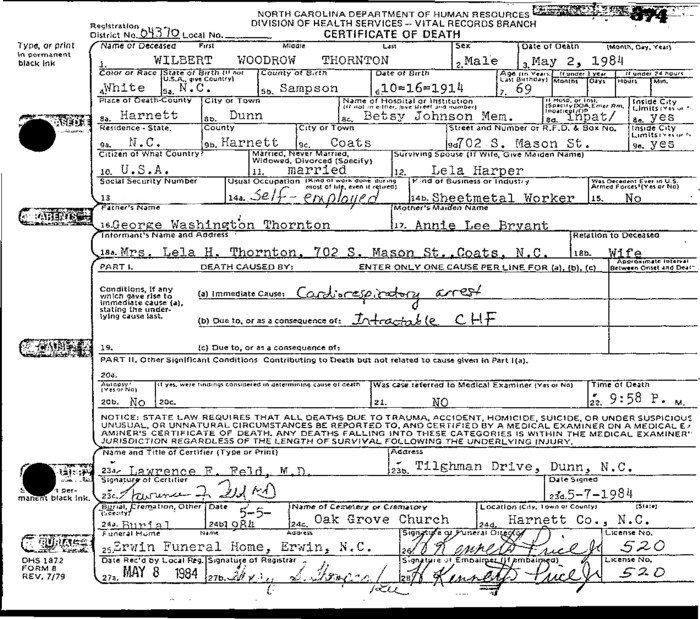 NORTH CAROLINA DEPARTMENT OF HUMAN RESOURCES
DIVISION OF HEALTH SERVICES – VITAL RECORDS BRANCH
CERTIFICATE OF DEATH
374
Registration
District No. 04370 Local No.
Type, or print in permanent black ink
Name of Deceased First Middle Last Sex Date of Death (Month, Day, Year)
1. WILBERT WOODROW THORNTON 2. Male 3. May 2, 1984
Color or Race State of Birth (If not U.S.A., give Country) County of Birth Date of Birth Age (In Years Last Birthday) If under 1 year Months Days If under 24 hours Hours Min.
4. White 5a. N.C. 5b. Sampson 6. 10=16=1914 7. 69
Place of Death-County City or Town Name of Hospital or Institution (If not in either, give street and number) If Hosp. or Inst. Inside City Limits
8a. Harnett 8b. Dunn 8c. Betsy Johnson Mem. 8d. inpat/ 8e. yes
Residence - State. County City or Town Street and Number or R.F.D. & Box No. Inside City Limits
9a. N.C. 9b. Harnett 9c. Coats 9d. 702 S. Mason St. 9e. yes
Citizen of What Country? Married, Never Married, Widowed, Divorced (Specify) Surviving Spouse (If Wife, Give Maiden Name)
10. U.S.A. 11. married 12. Lela Harper
Social Security Number Usual Occupation (Kind of work done during most of life, even if retired) Kind of Business or Industry Was Deceased Ever in U.S. Armed Forces? (Yes or No)
13. 14a. Self-employed 14b. Sheetmetal Worker 15. No
PARENTS
Father's Name Mother's Maiden Name
16. George Washington Thornton 17. Annie Lee Bryant
Informant's Name and Address Relation to Deceased
18a. Mrs. Lela H. Thornton, 702 S. Mason St., Coats, N.C. 18b. Wife
PART I. DEATH CAUSED BY: ENTER ONLY ONE CAUSE PER LINE FOR (a), (b), (c) Approximate Interval Between Onset and Death
Conditions, if any which gave rise to immediate cause (a), stating the underlying cause last.
(a) Immediate Cause: Cardiorespiratory arrest
(b) Due to, or as a consequence of: Intractable CHF
CAUSE
19. (c) Due to, or as a consequence of:
PART II. Other Significant Conditions Contributing to Death but not related to cause given in Part I(a).
20a.
Autopsy? (Yes or No) If yes, were findings considered in determining cause of death Was case referred to Medical Examiner (Yes or No) Time of Death
20b. No 20c. 21. NO 22. 9:58 P. M.
NOTICE: STATE LAW REQUIRES THAT ALL DEATHS DUE TO TRAUMA, ACCIDENT, HOMICIDE, SUICIDE, OR UNDER SUSPICIOUS
UNUSUAL, OR UNNATURAL CIRCUMSTANCES BE REPORTED TO, AND CERTIFIED BY A MEDICAL EXAMINER ON A MEDICAL E
AMINER'S CERTIFICATE OF DEATH. ANY DEATHS FALLING INTO THESE CATEGORIES IS WITHIN THE MEDICAL EXAMINER'
JURISDICTION REGARDLESS OF THE LENGTH OF SURVIVAL FOLLOWING THE UNDERLYING INJURY.
Name and Title of Certifier (Type or Print) Address
23a. Lawrence F. Feld, M.D. 23b. Tilghman Drive, Dunn, N.C.
Signature of Certifier Date Signed
23c. Lawrence F. Feld MD 23d. 5-7-1984
manent black ink.
Burial, Cremation, Other (Specify) Date Name of Cemetery or Crematory Location (City, Town or County) (State)
24a. Burial 24b. 5-5-1984 24c. Oak Grove Church 24d. Harnett Co., N.C.
BURIAL
Funeral Home Name Address Signature of Funeral Director License No.
25. Erwin Funeral Home, Erwin, N.C. 26. W Kenneth Price Jr 520
DHS 1872
FORM 8
REV. 7/79
Date Rec'd by Local Reg. Signature of Registrar Signature of Embalmer (If embalmed) License No.
27a. MAY 8 1984 27b. 28. W Kenneth Price Jr 520